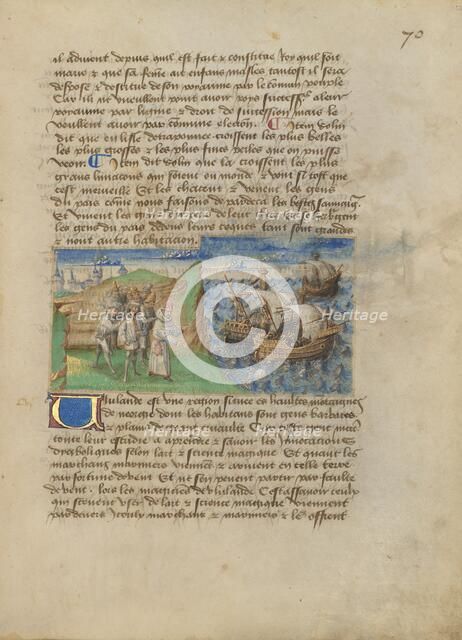 70
il advient depuis quil est fait et constitue Roy quil soit
marie et que sa femme ait enfans masles tantost il sera
depose et destitue de son royaume par le commun peuple
Car ilz ne vueillent point avoir roys
royaume par ligne et droit de succession mais le
veullent avoir par commune election. Item Solin
dit que en lisle de croissent les plus belles
les plus grosses et les plus fines perles que on puisse
veoir. Item dit Solin que la croissent les plus
grans limacons qui soient ou monde. Voire si tost que
cest merveille Et les chacent et venent les gens
du pais come nous faisons de par deca les bestes sauvaiges.
Et vivent les de leur Et se herbergent
les gens du pais dedens leurs coques tant sont grandes
et nont autre habitacion.
Heritage
Heritage
Heritage
Heritage
C
Heritage
Heritage
Uinlande est une region scituee es haultes montaignes
de norvege dont les habitans sont gens barbares
et plains de Car ilz mettent
toute leur estudie a aprendre et savoir les Invocations
dyaboliques selon lart et science magique Et quant les
marchans maronniers viennent et arrivent en celle terre
par fortune de vent Et ne sen pevent partir par faulte
de vent. lors les magiciens de Uinlande Cest assavoir ceulx
qui scevent user de lart et science magique viennent
par devers Iceulx marchans et maronniers et les offrent